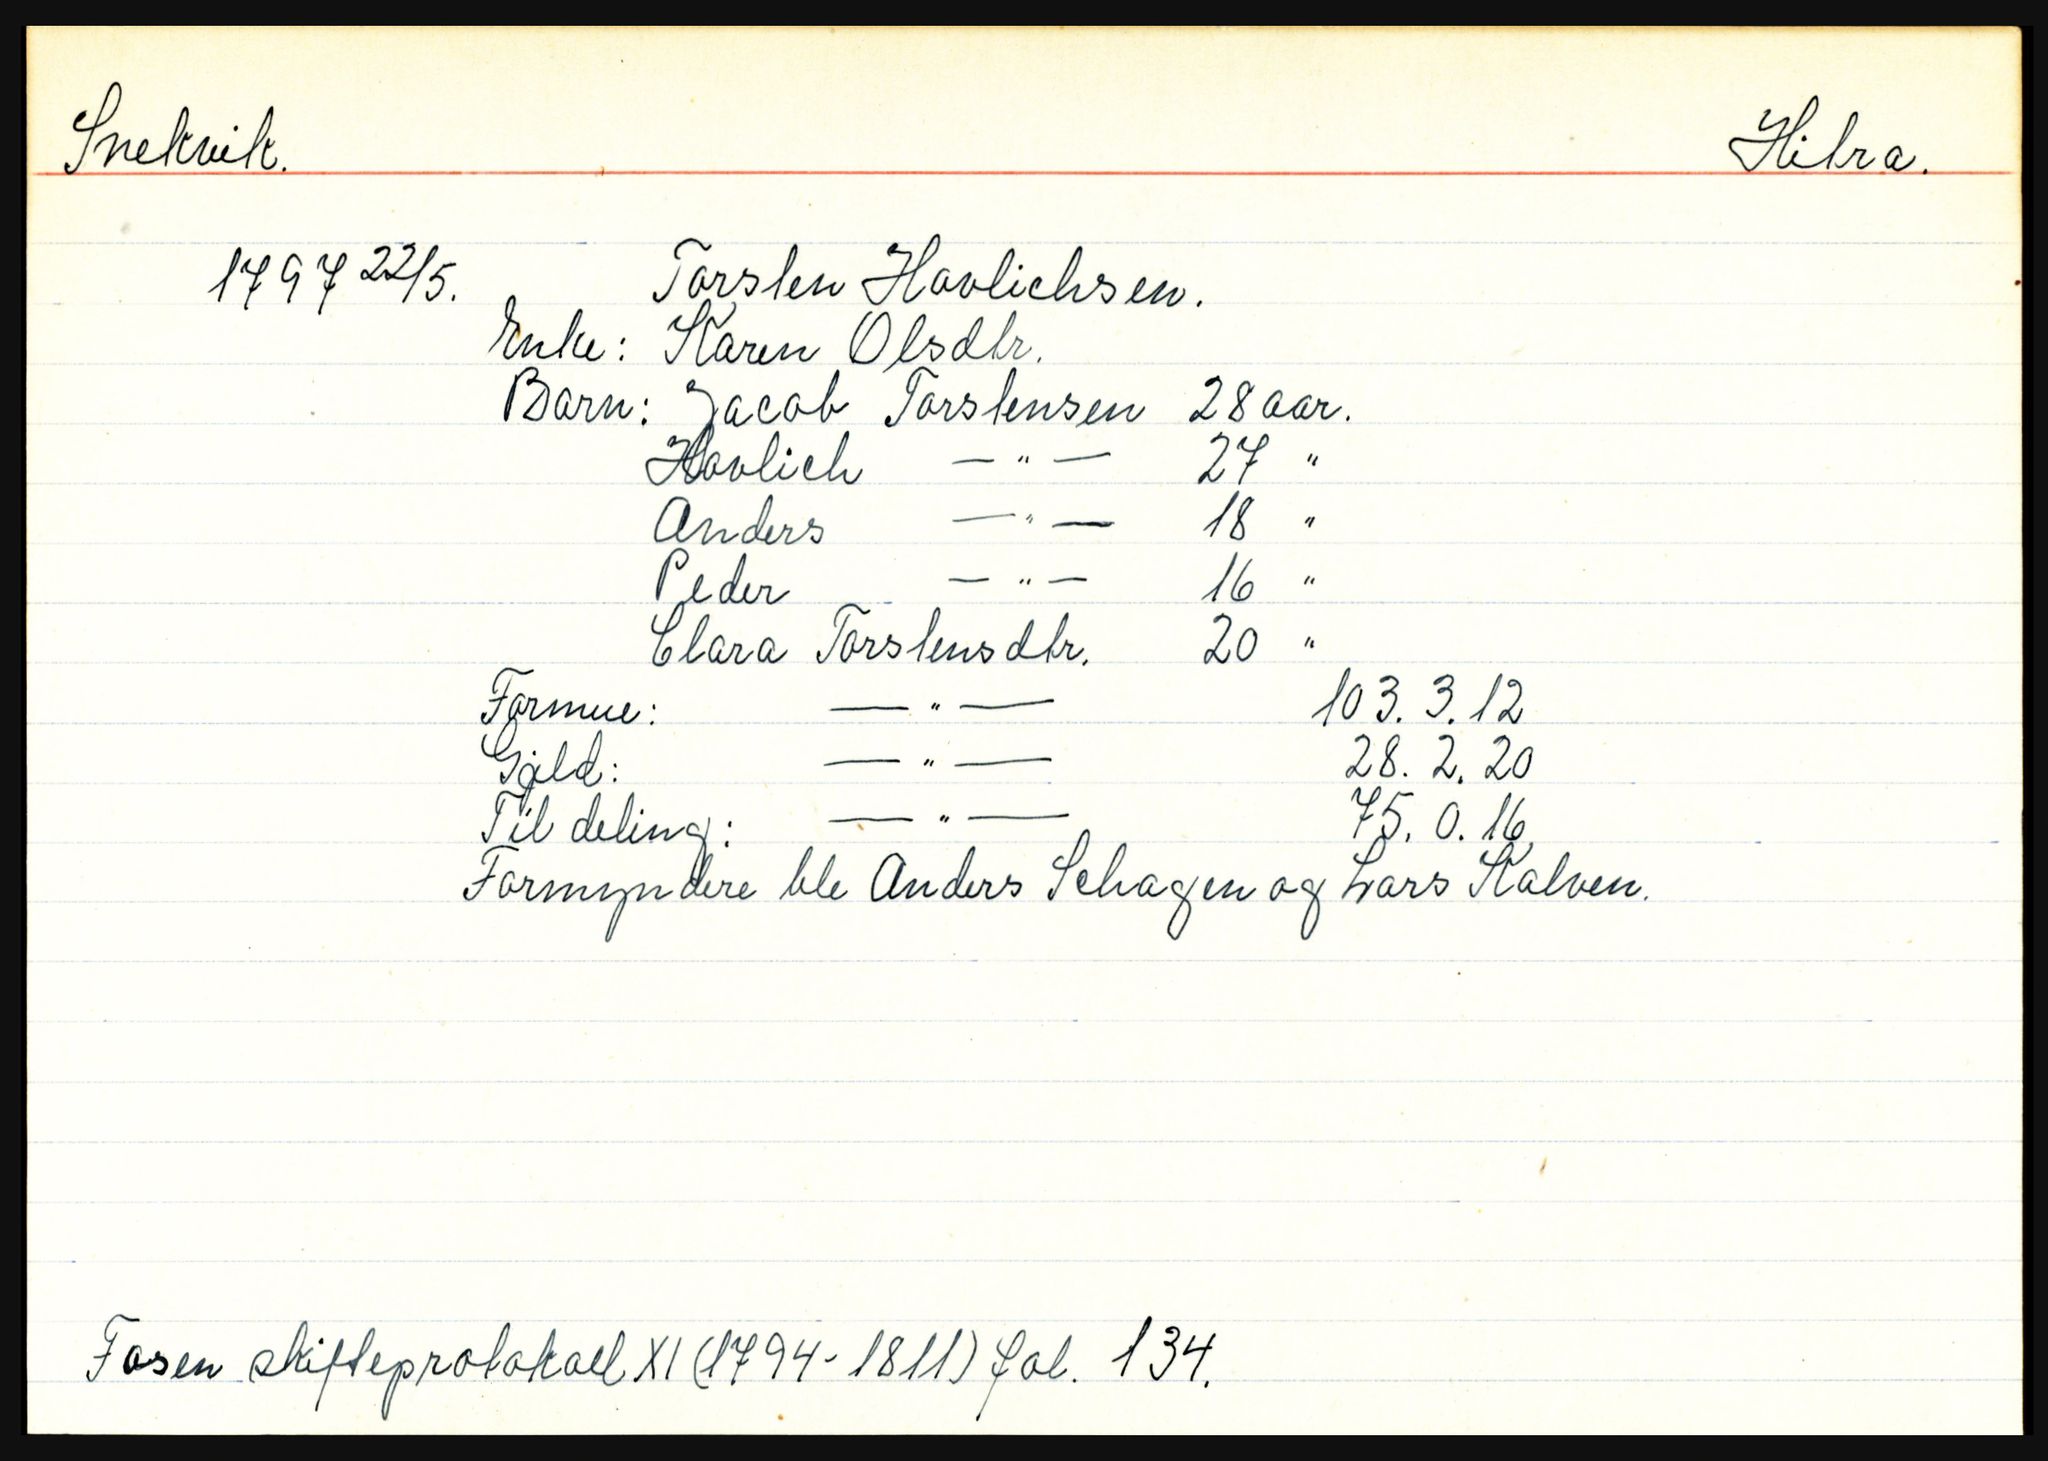 Snekvik. Hitra.
1797 22/5. Torsten Havlichsen.
Enke: Karen Olsdtr.
Barn: Jacob Torstensen 28 aar.
Havlich — " — 27 "
Anders — " — 18 "
Peder — " — 16 "
Clara Torstensdtr. 20 "
Formue: — " — 103. 3. 12
Gjeld: — " — 28. 2. 20
Til deling: — " — 75. 0. 16
Formyndere ble Anders Schagen og Lars Kalven.
Fosen skifteprotokoll XI (1794-1811) fol. 134.